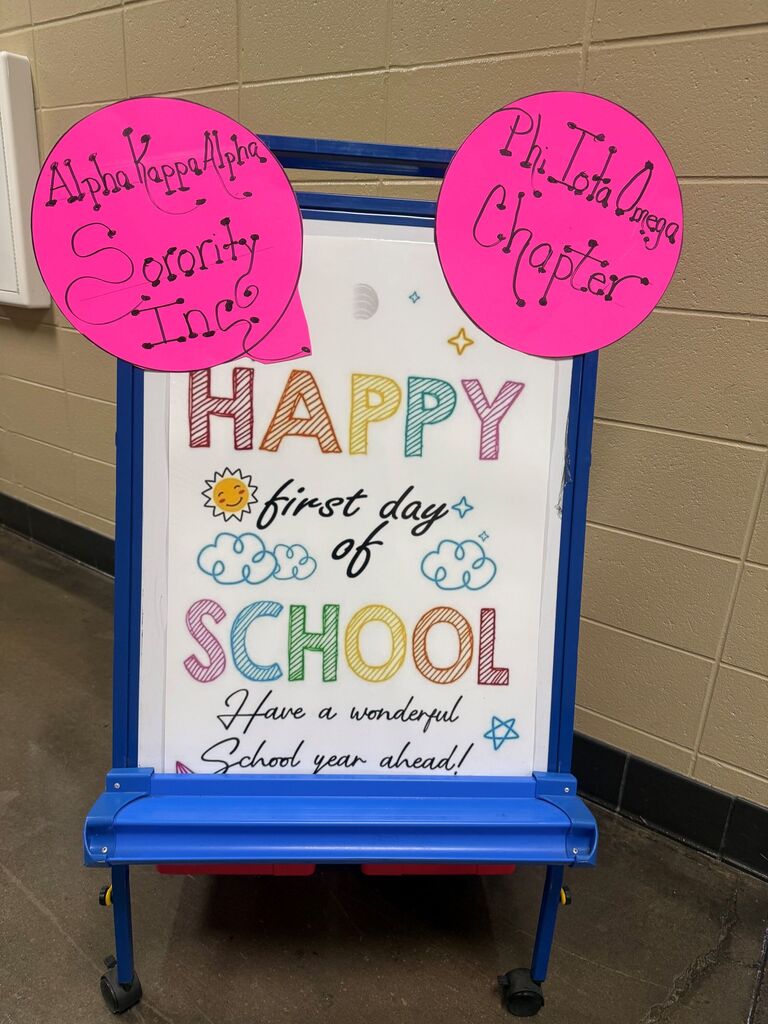 Alpha Kappa Alpha
Sorority
Inc.
Phi Iota Omega
Chapter
HAPPY
first day
of
SCHOOL
Have a wonderful
School year ahead!